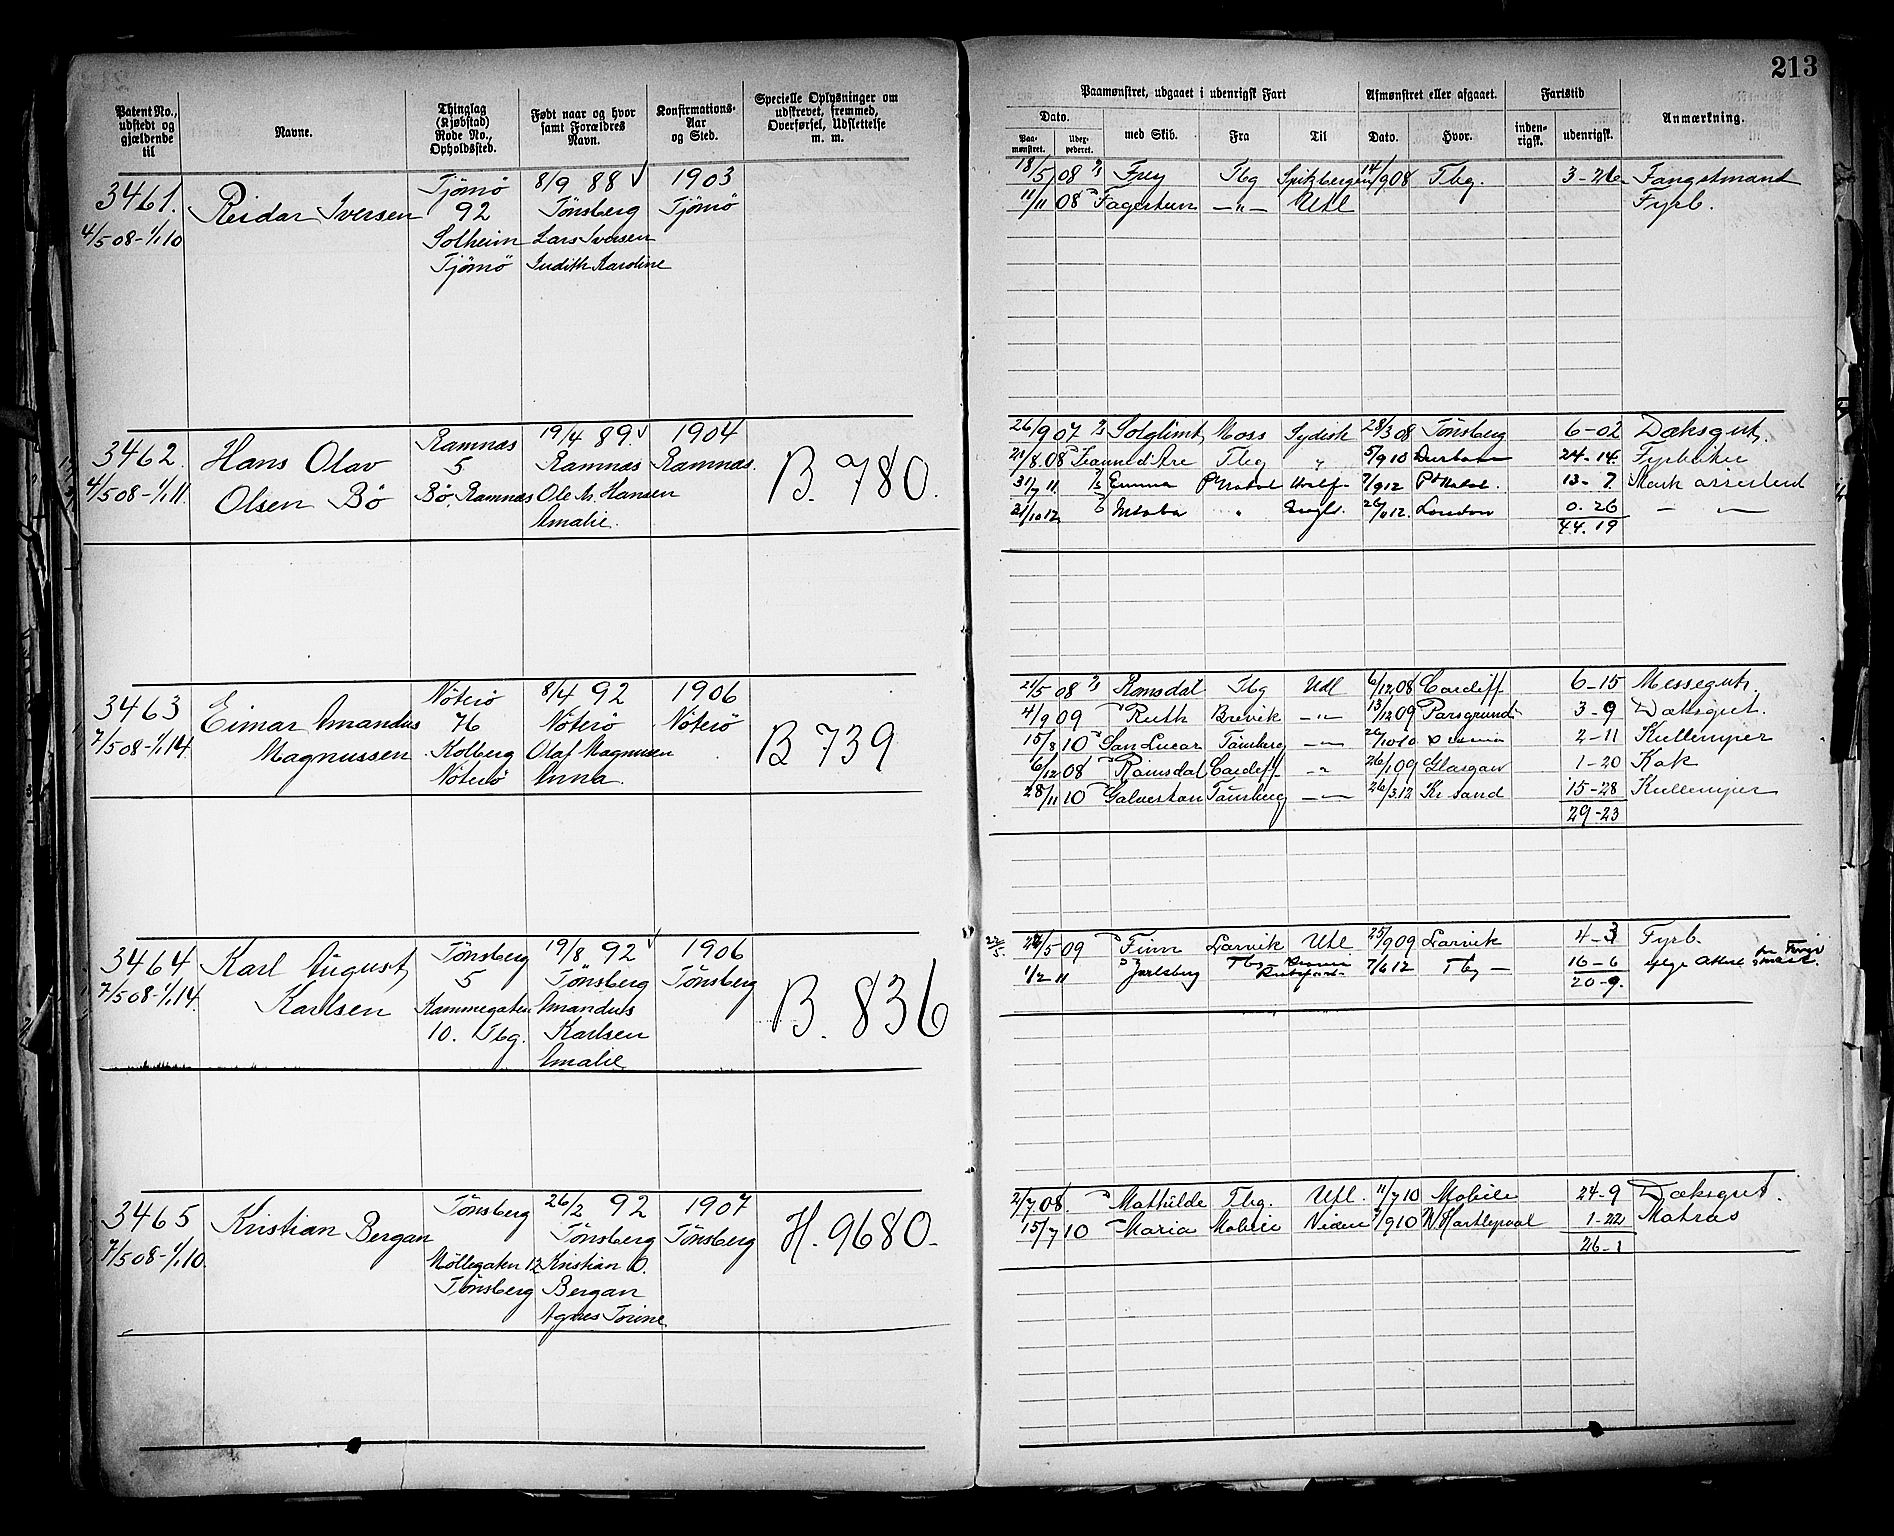 213
Patent No., udstedt og gjældende til
Navne.
Thinglag (Kjøbstad) Rode No., Opholdssted.
Født naar og hvor samt Forældres Navn.
Konfirmations-Aar og Sted.
Specielle Oplysninger om udskrevet, fremmed, Overførsel, Udslettelse m. m.
Paamønstret, udgaaet i udenrigsk Fart
Afmønstret eller afgaaet.
Fartstid
Anmærkning.
Dato.
Paa-mønstret.
med Skib.
Fra
Til
Dato.
Hvor.
inden-rigsk.
udenrigsk.
3461.
4/5 08-1/1 10
Reidar Iversen
Tjömö
92
Solheim
Tjömö
8/9 88
Tönsberg
Lars Iversen
Judith Karoline
1903
Tjömö
18/5 08 Frey Tbg Spitzbergen 14/9 08 Tbg. 3-26 Fangstmand
11/11 08 Fagerheim -"- Utl Fyrb.
3462.
4/5 08-1/1 11.
Hans Olav
Olsen Bö
Ramnæs
5
Bö, Ramnæs
19/4 89.
Ramnæs
Ole M. Hansen
Amalie.
1904
Ramnæs.
B. 780.
26/9 07 Solglimt Moss Sydish 28/3 08 Tönsberg 6-02 Dæksgut.
21/8.08 Tbg " 5/9 10 Durban 24-14. Fyrböter
31/7 11. Emma Pt Natal Hvalf- 7/9 12 Pt Natal. 13-7.
21/10 12 " Engl. London 0.26 - " -
44.19
3463
7/5 08-1/1 14.
Eimar Amandus
Magnussen
Nöterö
76
Kolberg
Nöterö
8/4 92
Nöterö
Olaf Magnussen
Anna
1906
Nöterö
B 739
21/5 08 Romsdal Tbg Udl 6/12 08 Cardiff 6-15 Messegut.
4/9 09 Ruth Brevik -"- 13/12 09 Porsgrund 3-9 Dæksgut.
15/8 10 San Lucar Tönsberg -"- 26/10 10 2-11 Kullemper
6/12 08 Romsdal Cardiff -"- 26/1 09 Glasgow 1-20 Kok
28/11 10 Galveston Tönsberg -"- 26/3.12 Kr sand 15-28 Kullemper
29-23
3464
7/5 08-1/1 14.
Karl August
Karlsen
Tönsberg
5
Kammegaten
10. Tbg.
19/8 92
Tönsberg
Amandus
Karlsen
Amalie
1906
Tönsberg
B. 836
5/09 Finn Larvik Utl 25/9 09 Larvik 4-3 Fyrb.
1/2 11 Jarlsberg Tbg- 7/6 12 Tbg- 16-6
20-9.
3465
7/5 08-1/1 10.
Kristian Bergan
Tönsberg
Möllegaten 12
Tönsberg
26/2 92
Tönsberg
Kristian O.
Bergan
Agnes Torine
1907
Tönsberg
H. 9680-
2/7 08. Mathilde Tbg. Utl. 11/7 10 Mobile 24-9 Dæksgut.
15/7 10 Maria Mobile 9 10 W. Hartlepool 1-22 Matros
26-1